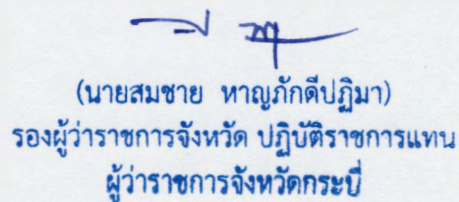 (นายสมชาย หาญภักดีปฏิมา)
รองผู้ว่าราชการจังหวัด ปฏิบัติราชการแทน
ผู้ว่าราชการจังหวัดกระบี่